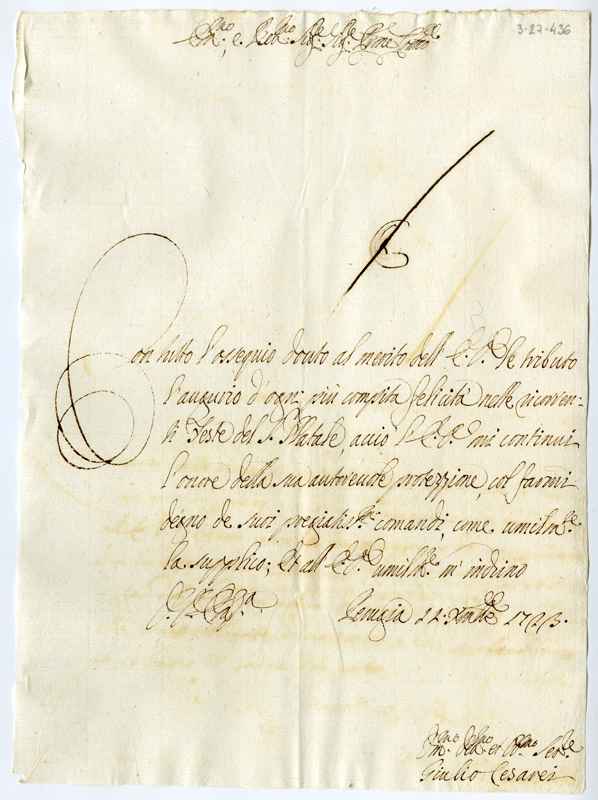 3-27-436
Ill.mo e Rev.mo Sig.re Sig.re P͠rone Col.mo
Con tutto l'ossequio douto al merito dell'
le tributo
l'augurio d'ogni più compita felicità nelle ricorren-
ti feste del S. Natale, acciò mi continui
l'onore della sua autoreuole protezzione, col farmi
degno de suoi pregiatis.mi comandi, come umilm.te
la supplico; Et all' umilm.te m'inchino
Perugia 22 Xmbre 1723.
et Obl.mo Ser.re
Giulio Cesarei